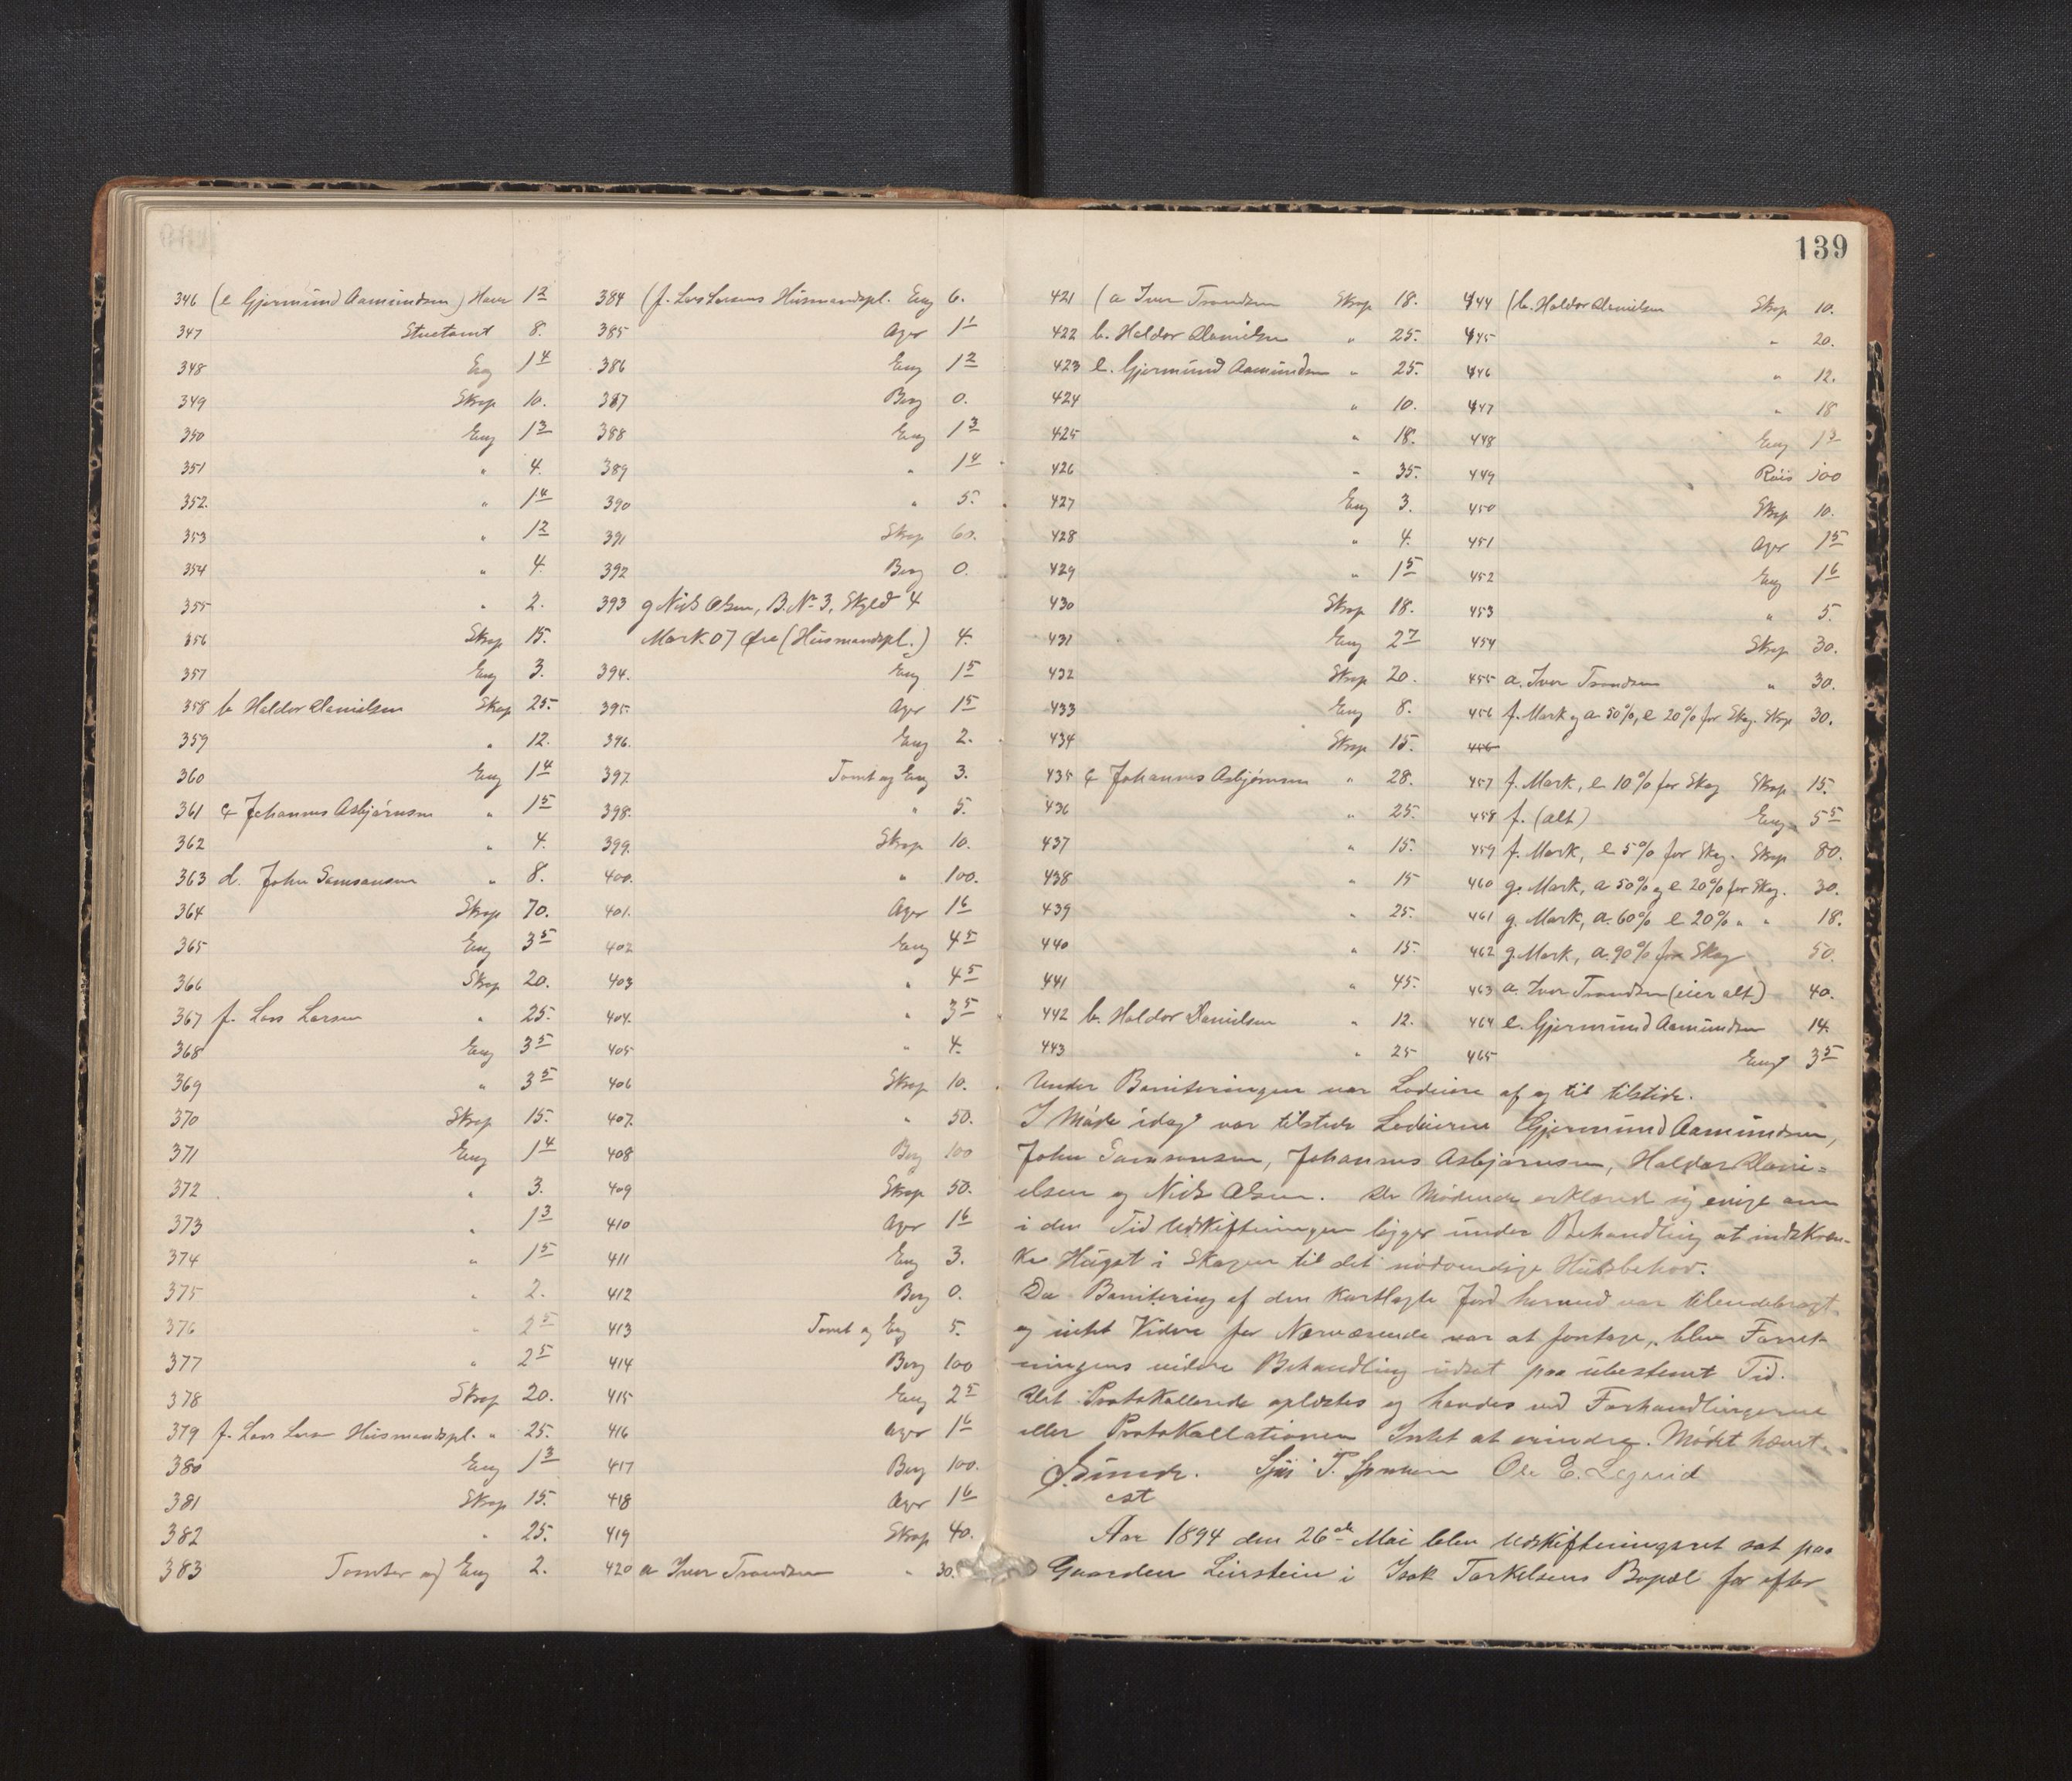 139
346 (e Gjermund Aamundsen) Have 12
347 Stuetomt 8.
348 Eng 14
349 Skog 10.
350 Eng 13
351 " 4.
352. " 14
353 " 12
354 " 4.
355 " 2.
356 Skog 15.
357 Eng 3.
358 b Haldor Danielsen Skog 25.
359 " 12.
360 Eng 14
361 c Johannes Asbjørnsen " 15
362 " 4.
363 d. John Samsonsen " 8.
364 Skog 70.
365 Eng 35
366 Skog 20.
367 f. Lars Larsen " 25.
368 Eng 35
369 " 35
370 Skog 15.
371 Eng 14
372 " 3.
373 " 13
374 " 15
375 " 2.
376 " 25
377 " 25
378 Skog 20.
379 f. Lars Larsen Husmandspl. " 25.
380 Eng 13
381 Skog 15.
382 " 25.
383 Tomter og Eng 2.
384 (f. Lars Larsens Husmandspl. Eng 6.
385 Ager 11
386 Eng 12
387 Berg 0.
388 Eng 13
389 " 14
390 " 5.
391 Skog 60.
392 Berg 0.
393 g Nils Olsen, B.No 3, Skyld 4
Mark 07 Øre (Husmandspl.) 4.
394. Eng 15
395. Ager 15
396. Eng 2.
397. Tomt og Eng 3.
398. " 5.
399. Skog 10.
400. " 100.
401. Ager 16
402 Eng 45
403 " 45
404. " 35
405 " 4.
406 Skog 10.
407. " 50.
408 Berg 100
409 Skog 50.
410 Ager 16
411 Eng 3.
412 Berg 0.
413 Tomt og Eng 5.
414 Berg 100
415 Eng 25
416 Ager 16
417 Berg 100.
418 Ager 16
419 Skog 40.
420 a Iver Trondsen " 30.
421 (a Iver Trondsen Skog 18.
422 b. Haldor Danielsen " 25.
423 e. Gjermund Aamundsen " 25.
424 " 10.
425 " 18.
426 " 35.
427 Eng 3.
428 " 4.
429 " 15
430 Skog 18.
431 Eng 27
432 Skog 20.
433 Eng 8.
434 Skog 15.
435 c Johannes Asbjørnsen " 28.
436 " 25.
437 " 15.
438 " 15
439 " 25.
440 " 15.
441 " 45.
442 b. Haldor Danielsen " 12.
443 " 25
444 (b. Haldor Danielsen Skog 10.
445 " 20.
446 " 12.
447 " 18
448 Eng 13
449 Røis 100
450 Skog 10.
451 Ager 15
452 Eng 16
453 " 5.
454 Skog 30.
455 a. Iver Trondsen " 30.
456 f. Mark og a 50%, e 20% for Skog. Skog 30.
456
457 f. Mark, e 10% for Skog Skog 15.
458 f. (alt) Eng 55
459 f. Mark, e 5% for Skog. Skog 80.
460 g. Mark, a 50% og e 20% for Skog. 30.
461 g. Mark, a. 60% e 20% " " 18.
462 g. Mark, a. 90% for Skog 50.
463 a. Iver Trondsen (eier alt) 40.
464 e. Gjermund Aamundsen 14.
465 Eng 35
Under Boniteringen var Lodeiere af og til tilstede.
I Møde idag var tilstede Lodeierne Gjermund Aamundsen,
John Samsonsen, Johannes Asbjørnsen, Haldor Dani=
elsen og Nils Olsen. De Mødende erklærede sig enige om
i den Tid Udskiftningen ligger under Behandling at indskræn-
ke Hugst i Skogen til det nødvendige Husbehov.
Da Bonitering af den kartlagte Jord hermed var tilendebragt
og intet Videre for Nærværende var at foretage, blev Forret-
ningens videre Behandling udsat paa ubestemt Tid.
Det Protokollerede oplæstes og havdes ved Forhandlingerne
eller Protokollationen Intet at erindre. Mødet hævet.
Ole E. Legreid
cst
Aar 1894 den 26de Mai blev Udskiftningsret sat paa
Gaarden Leirstein i Isak Torkelsens Bopæl for efter